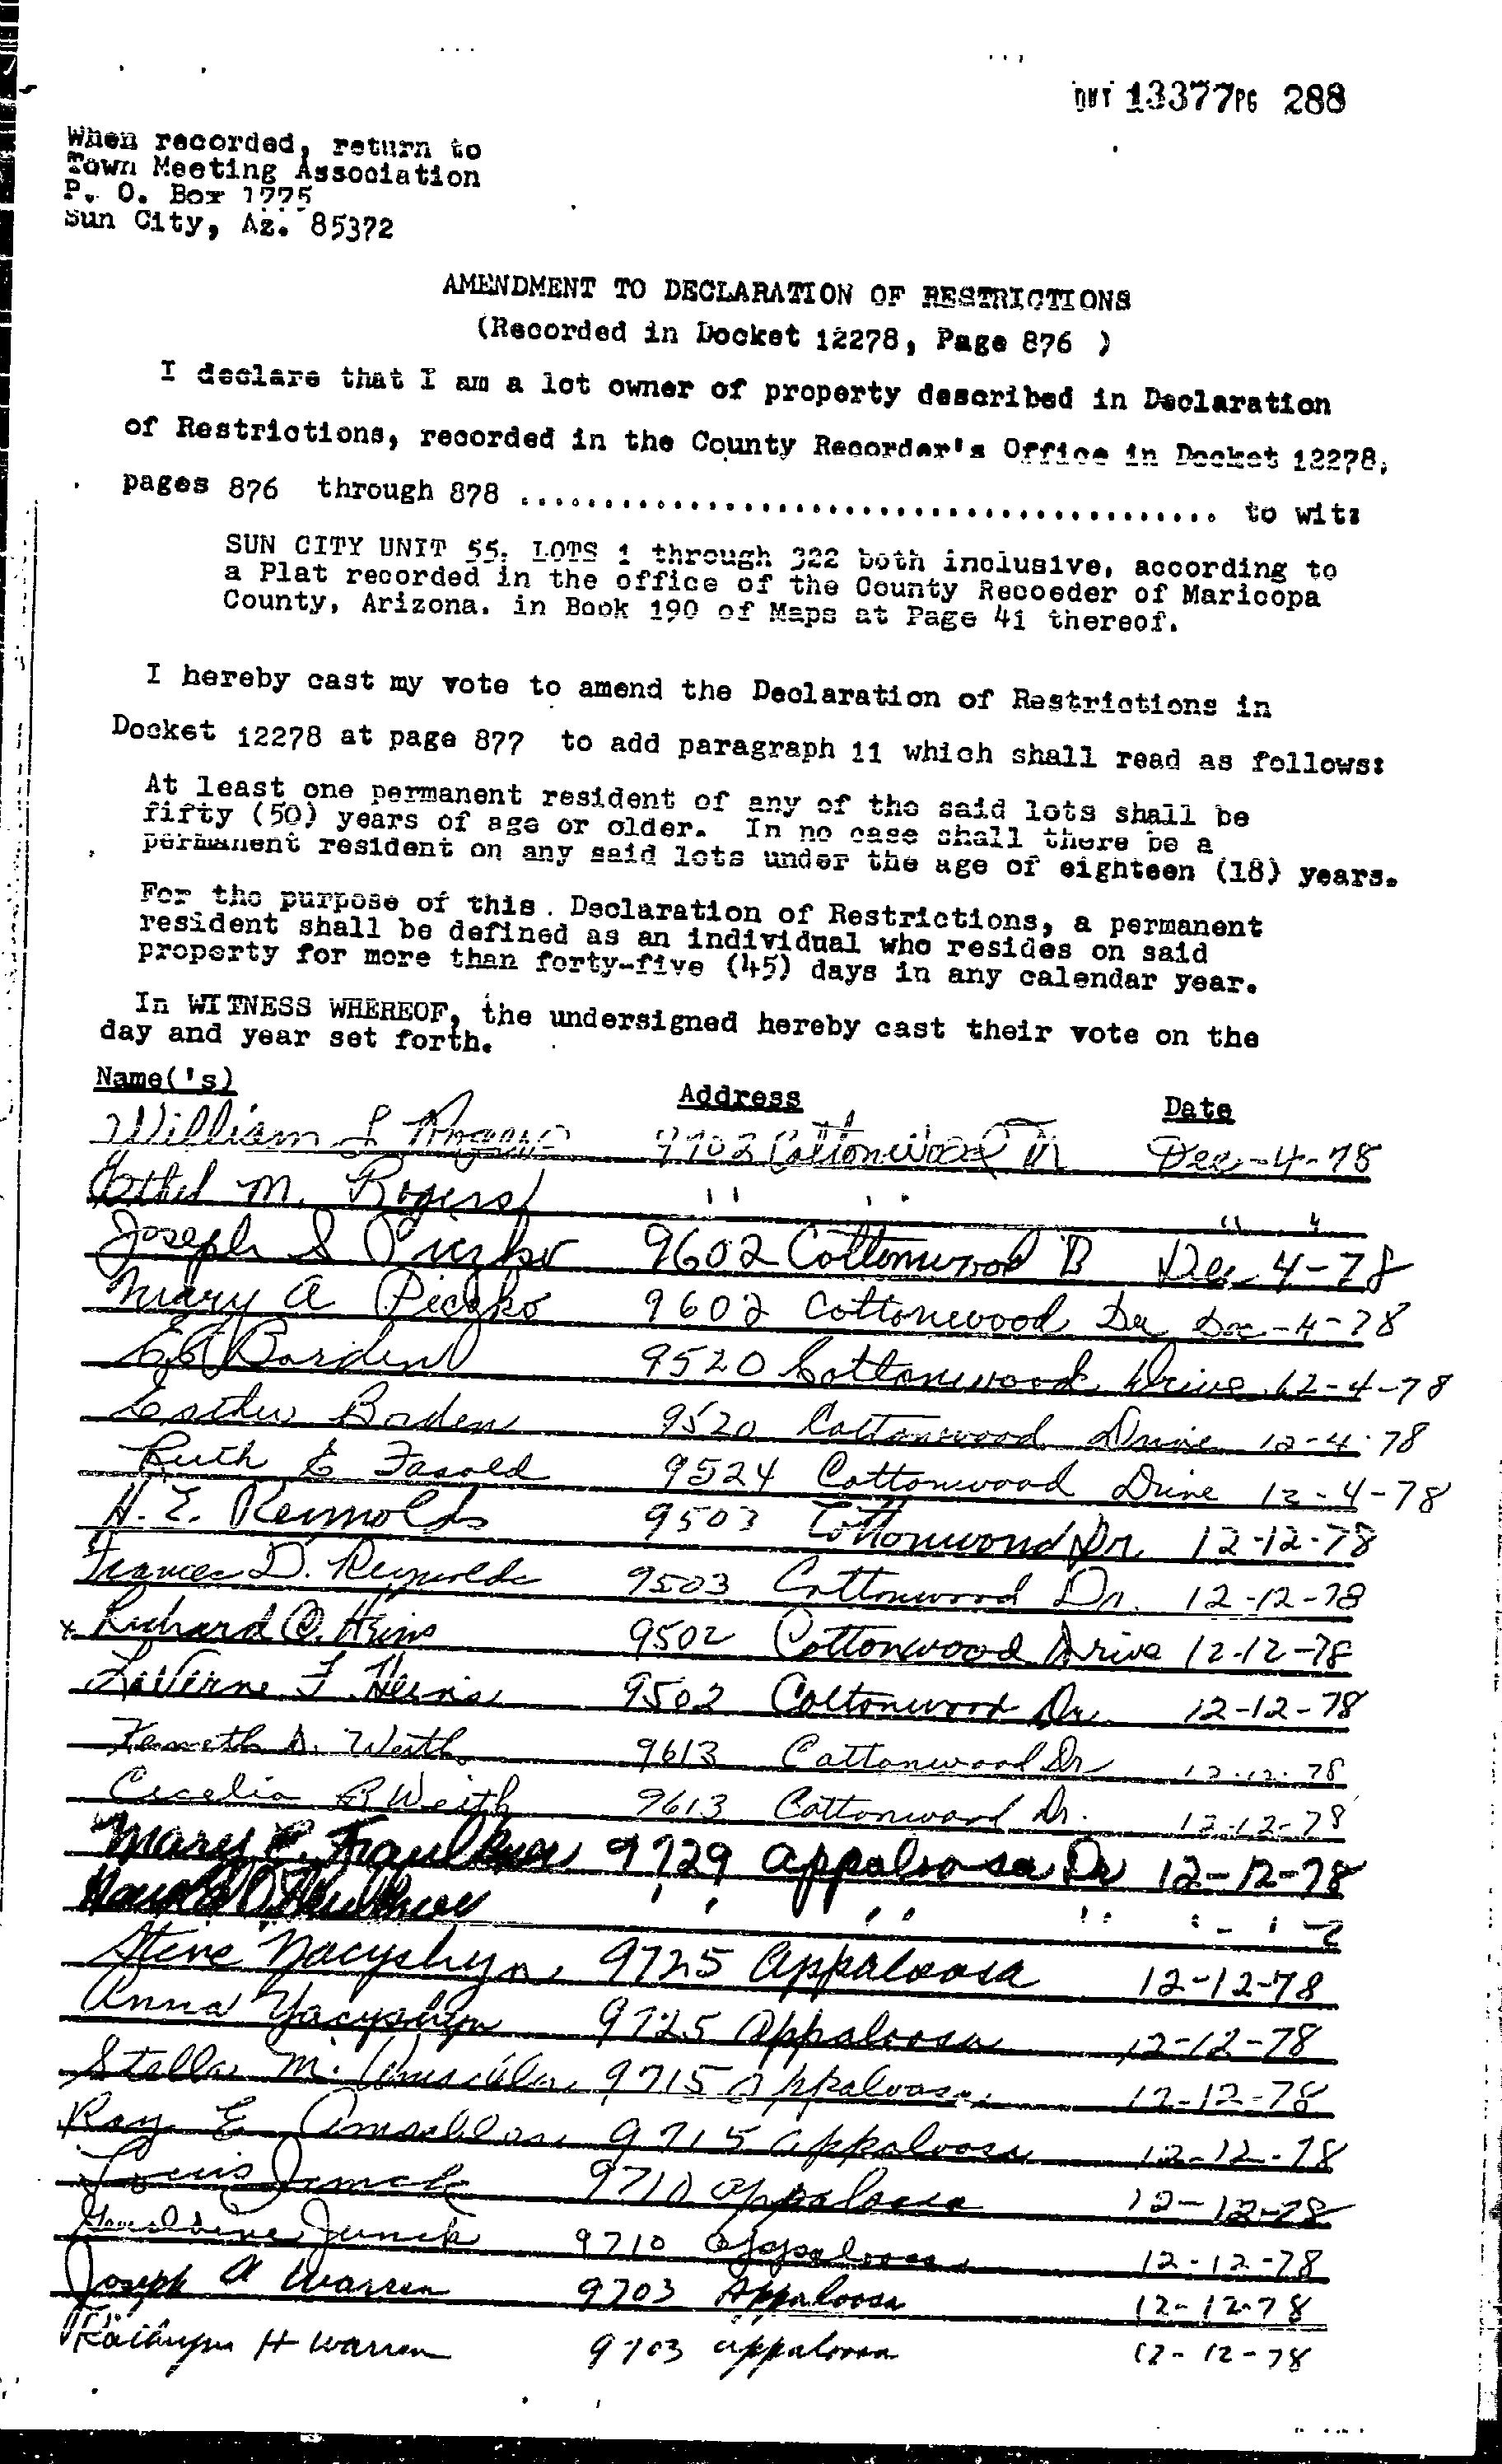 DKT 13377 PG 288
When recorded, return to
Town Meeting Association
P. O. Box 1775
Sun City, Az. 85372
AMENDMENT TO DECLARATION OF RESTRICTIONS
(Recorded in Docket 12278, Page 876 )
I declare that I am a lot owner of property described in Declaration
of Restrictions, recorded in the County Recorder's Office in Docket 12278,
pages 876 through 878 .......................................... to wit:
SUN CITY UNIT 55. LOTS 1 through 322 both inclusive, according to
a Plat recorded in the office of the County Recoeder of Maricopa
County, Arizona. in Book 190 of Maps at Page 41 thereof.
I hereby cast my vote to amend the Declaration of Restrictions in
Docket 12278 at page 877 to add paragraph 11 which shall read as follows:
At least one permanent resident of any of the said lots shall be
fifty (50) years of age or older. In no case shall there be a
permanent resident on any said lots under the age of eighteen (18) years.
For the purpose of this . Declaration of Restrictions, a permanent
resident shall be defined as an individual who resides on said
property for more than forty-five (45) days in any calendar year.
In WITNESS WHEREOF, the undersigned hereby cast their vote on the
day and year set forth.
Name('s) Address Date
William L Rogers 9702 Cottonwood Dr Dec-4-78
Ethel M. Rogers " " " "
Joseph S Piczko 9602 Cottonwood Dec 4-78
Mary A Piczko 9602 Cottonwood Dr Dec-4-78
Borden 9520 Cottonwood Drive 12-4-78
Esther Borden 9520 Cottonwood Drive 12-4-78
Ruth E Fasold 9524 Cottonwood Drive 12-4-78
H. E. Reynolds 9503 Cottonwood Dr. 12-12-78
Frances D. Reynolds 9503 Cottonwood Dr. 12-12-78
x Richard O. Heins 9502 Cottonwood Drive 12-12-78
LaVerne F. Heins 9502 Cottonwood Dr. 12-12-78
Kenneth D. Weith 9613 Cottonwood Dr 12-12-78
Cecelia R Weith 9613 Cottonwood Dr. 12-12-78
Mary E. Faulkner 9729 Appaloosa Dr 12-12-78
Faulkner " " " "
Steve Yacyshyn 9725 Appaloosa 12-12-78
Anna Yacyshyn 9725 Appaloosa 12-12-78
Stella M. 9715 Appaloosa 12-12-78
Ray E 9715 Appaloosa 12-12-78
Louis Junck 9710 Appaloosa 12-12-78
Geraldine Junck 9710 Appaloosa 12-12-78
Joseph A Warren 9703 Appaloosa 12-12-78
Kathryn H Warren 9703 Appaloosa 12-12-78